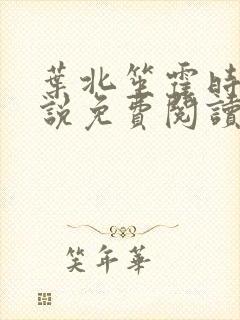 葉北笙霍時
說免費閱讀
笑年華